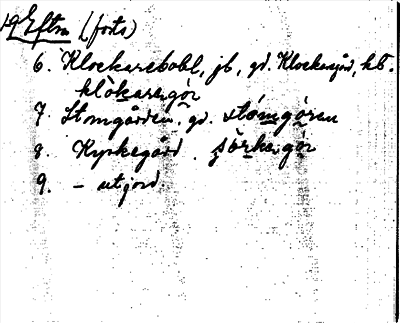 19 Eftra (forts)
6. Klockarebobl, jb, gd. Klockegård, kb.
klòkaragór
7. Stomgården, gd. stómgóren
8. Kyrkegård. śörkegór
9. – utjord.